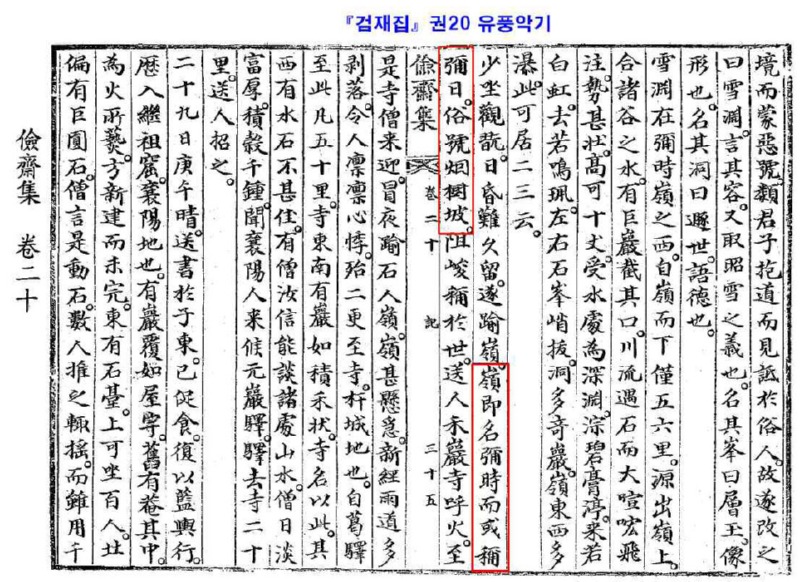 『검재집』 권20 유풍악기
境而蒙惡號類君子抱道而見詆於俗人故遂改之
曰雪淵言其容又取昭雪之義也名其峯曰層玉像
形也名其洞曰遯世語德也
雪淵在彌時嶺之西自嶺而下僅五六里源出嶺上
合諸谷之水有巨巖截其口川流遇石而大喧吰飛
注勢甚壯高可十丈受水處為深淵淙碧膏渟来若
白虹去若鳴珮左右石峯峭拔洞多奇巖嶺東西多
瀑此可居二三云
少坐觀翫日昏難久留遂踰嶺嶺即名彌時而或稱
彌日俗號烟樹坡阻峻稱於世送人禾巖寺呼火至
儉齋集 卷二十 記 三十五
是寺僧来迎冒夜踰石人嶺嶺甚懸急新經雨道多
剥落令人凛凛心悸殆二更至寺杆城地也自葛驛
至此凡五十里寺東南有巖如積禾状寺名以此其
西有水石不甚佳有僧汝信能談諸處山水僧日淡
富厚積穀千鍾聞襄陽人来候元巖驛驛去寺二十
里送人招之
二十九日庚午晴送書於子東已促食復以藍輿行
歷入繼祖窟襄陽地也有巖覆如屋宇舊有菴其中
為火所爇方新建而未完東有石臺上可坐百人北
偏有巨圓石僧言是動石數人推之輒摇而雖用千
儉齋集 卷二十